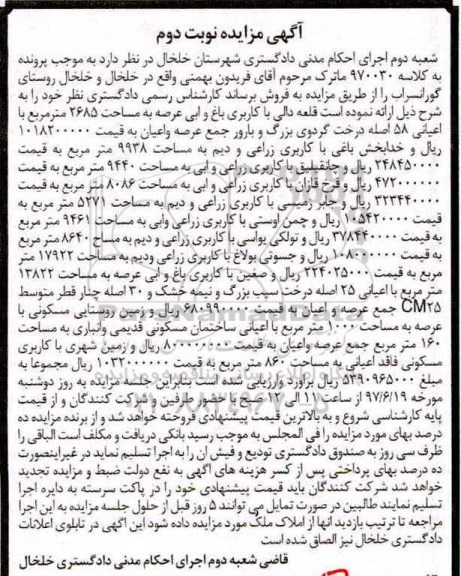 آگهی مزایده نوبت دوم
شعبه دوم اجرای احکام مدنی دادگستری شهرستان خلخال در نظر دارد به موجب پرونده
به کلاسه ۹۷۰۰۳۰ ماترک مرحوم آقای فریدون بهمنی واقع در خلخال و خلخال روستای
گورانسراب را از طریق مزایده به فروش برساند کارشناس رسمی دادگستری نظر خود را به
شرح ذیل ارائه نموده است قلعه دالی با کاربری باغ و ابی عرصه به مساحت ۲۶۸۵ مترمربع با
اعیانی ۵۸ اصله درخت گردوی بزرگ و بارور جمع عرصه واعیان به قیمت ۱۰۱۸۲۰۰۰۰۰
ریال و خدابخش باغی با کاربری زراعی و دیم به مساحت ۹۹۳۸ متر مربع به قیمت
۲۴۸۴۵۰۰۰۰ ریال و جانقیلیق با کاربری زراعی و ابی به مساحت ۹۴۴۰ متر مربع به قیمت
۴۷۲۰۰۰۰۰۰ ریال و قرخ قازان با کاربری زراعی و ابی به مساحت ۸۰۸۶ متر مربع به قیمت
۳۲۳۴۴۰۰۰۰ ریال و جابر زمیسی با کاربری زراعی و دیم به مساحت ۵۲۷۱ متر مربع به
قیمت ۱۰۵۴۲۰۰۰۰ ریال و چمن اوستی با کاربری زراعی وابی به مساحت ۹۴۶۱ متر مربع
به قیمت ۳۷۸۴۴۰۰۰۰ ریال و تولکی یواسی با کاربری زراعی و دیم به مساح ۸۶۴۰ متر مربع
به قیمت ۱۰۸۰۰۰۰۰۰ ریال و جسونی بولاغ با کاربری زراعی ودیم به مساحت ۱۷۹۲۲ متر
مربع به قیمت ۲۲۴۰۲۵۰۰۰ ریال و صغین با کاربری باغ و ابی عرصه به مساحت ۱۳۸۲۲
متر مربع با اعیانی ۲۵ اصله درخت سیب بزرگ و نیمه خشک و ۳۰ اصله چنار قطر متوسط
CM۲۵ جمع عرصه و اعیان به قیمت ریال و زمین روستایی مسکونی با
عرصه به مساحت ۱۰۰۰ متر مربع با اعیانی ساختمان مسکونی قدیمی وانباری به مساحت
۱۶۰ متر مربع جمع عرصه واعیان به قیمت ۸۰۰۰۰۰۰۰۰ ریال و زمین شهری با کاربری
مسکونی فاقد اعیانی به مساحت ۸۶۰ متر مربع به قیمت ۱۰۳۲۰۰۰۰۰۰ ریال مجموعا به
مبلغ ۵۳۹۰۹۶۵۰۰۰ ریال براورد وارزیابی شده است بنابراین جلسه مزایده به روز دوشنبه
مورخه ۹۷/۶/۱۹ از ساعت ۱۱ الی ۱۲ صبح با حضور طرفین و شرکت کنندگان و از قیمت
پایه کارشناسی شروع و به بالاترین قیمت پیشنهادی فروخته خواهد شد و از برنده مزایده ده
درصد بهای مورد مزایده را فی المجلس به موجب رسید بانکی دریافت و مکلف است الباقی را
ظرف سی روز به صندوق دادگستری تودیع و فیش ان را به اجرا تسلیم نماید در غیراینصورت
ده درصد بهای پرداختی پس از کسر هزینه های اگهی به نفع دولت ضبط و مزایده تجدید
خواهد شد شرکت کنندگان باید قیمت پیشنهادی خود را در پاکت سرسته به دایره اجرا
تسلیم نمایند طالبین در صورت تمایل می توانند ۵ روز قبل از حلول جلسه مزایده به این اجرا
مراجعه تا ترتیب بازدید انها از املاک ملک مورد مزایده داده شود این اگهی در تابلوی اعلانات
دادگستری خلخال نیز الصاق شده است
قاضی شعبه دوم اجرای احکام مدنی دادگستری خلخال